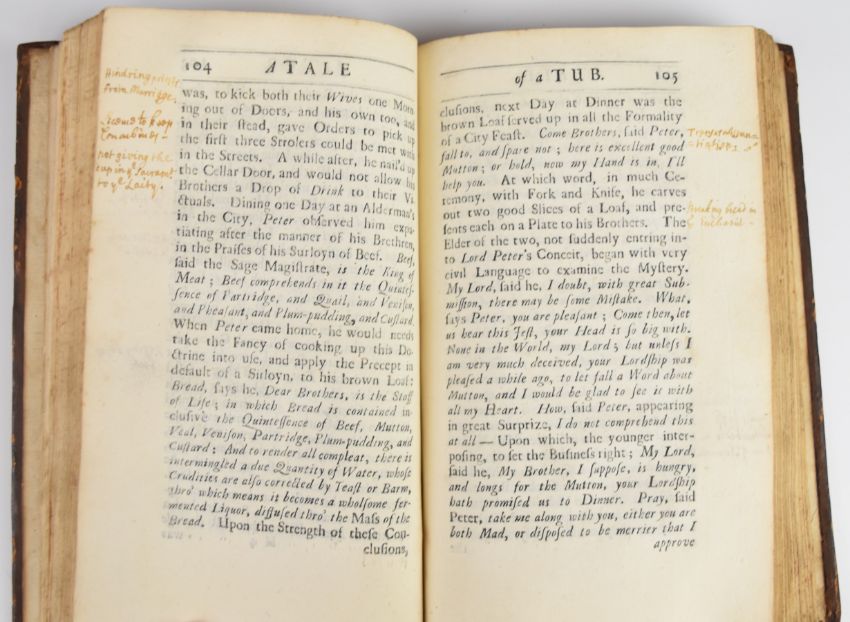 104 A TALE
Hindring priests
from Marriage.
Seems to keep
Concubines
not giving the
cup in yᵉ Sacramt
to yᵉ Laity.
was, to kick both their Wives one Morn-
ing out of Doors, and his own too, and
in their ſtead, gave Orders to pick up
the firſt three Strolers could be met with
in the Streets. A while after, he nail'd up
the Cellar Door, and would not allow his
Brothers a Drop of Drink to their Vi-
ctuals. Dining one Day at an Alderman's
in the City, Peter obſerved him expa-
tiating after the manner of his Brethren,
in the Praiſes of his Surloyn of Beef. Beef,
ſaid the Sage Magiſtrate, is the King of
Meat; Beef comprehends in it the Quinteſ-
ſence of Partridge, and Quail, and Veniſon,
and Pheaſant, and Plum-pudding, and Cuſtard.
When Peter came home, he would needs
take the Fancy of cooking up this Do-
ctrine into uſe, and apply the Precept in
default of a Surloyn, to his brown Loaf:
Bread, ſays he, Dear Brothers, is the Staff
of Life; in which Bread is contained in-
cluſivè the Quinteſſence of Beef, Mutton,
Veal, Veniſon, Partridge, Plum-pudding, and
Cuſtard: And to render all compleat, there is
intermingled a due Quantity of Water, whoſe
Crudities are alſo corrected by Yeaſt or Barm,
thro' which means it becomes a wholſome fer-
mented Liquor, diffuſed thro' the Maſs of the
Bread. Upon the Strength of theſe Con-
cluſions,
of a TUB. 105
cluſions, next Day at Dinner was the
brown Loaf ſerved up in all the Formality
of a City Feaſt. Come Brothers, ſaid Peter,
fall to, and ſpare not; here is excellent good
Mutton; or hold, now my Hand is in, I'll
help you. At which word, in much Ce-
remony, with Fork and Knife, he carves
out two good Slices of a Loaf, and pre-
ſents each on a Plate to his Brothers. The
Elder of the two, not ſuddenly entring in-
to Lord Peter's Conceit, began with very
civil Language to examine the Myſtery.
My Lord, ſaid he, I doubt, with great Sub-
miſſion, there may be ſome Miſtake. What,
ſays Peter, you are pleaſant; Come then, let
us hear this Jeſt, your Head is ſo big with.
None in the World, my Lord; but unleſs I
am very much deceived, your Lordſhip was
pleaſed a while ago, to let fall a Word about
Mutton, and I would be glad to ſee it with
all my Heart. How, ſaid Peter, appearing
in great Surprize, I do not comprehend this
at all — Upon which, the younger inter-
poſing, to ſet the Buſineſs right; My Lord,
ſaid he, My Brother, I ſuppoſe, is hungry,
and longs for the Mutton, your Lordſhip
hath promiſed us to Dinner. Pray, ſaid
Peter, take me along with you, either you are
both Mad, or diſpoſed to be merrier that I
approve
Breaking bread in